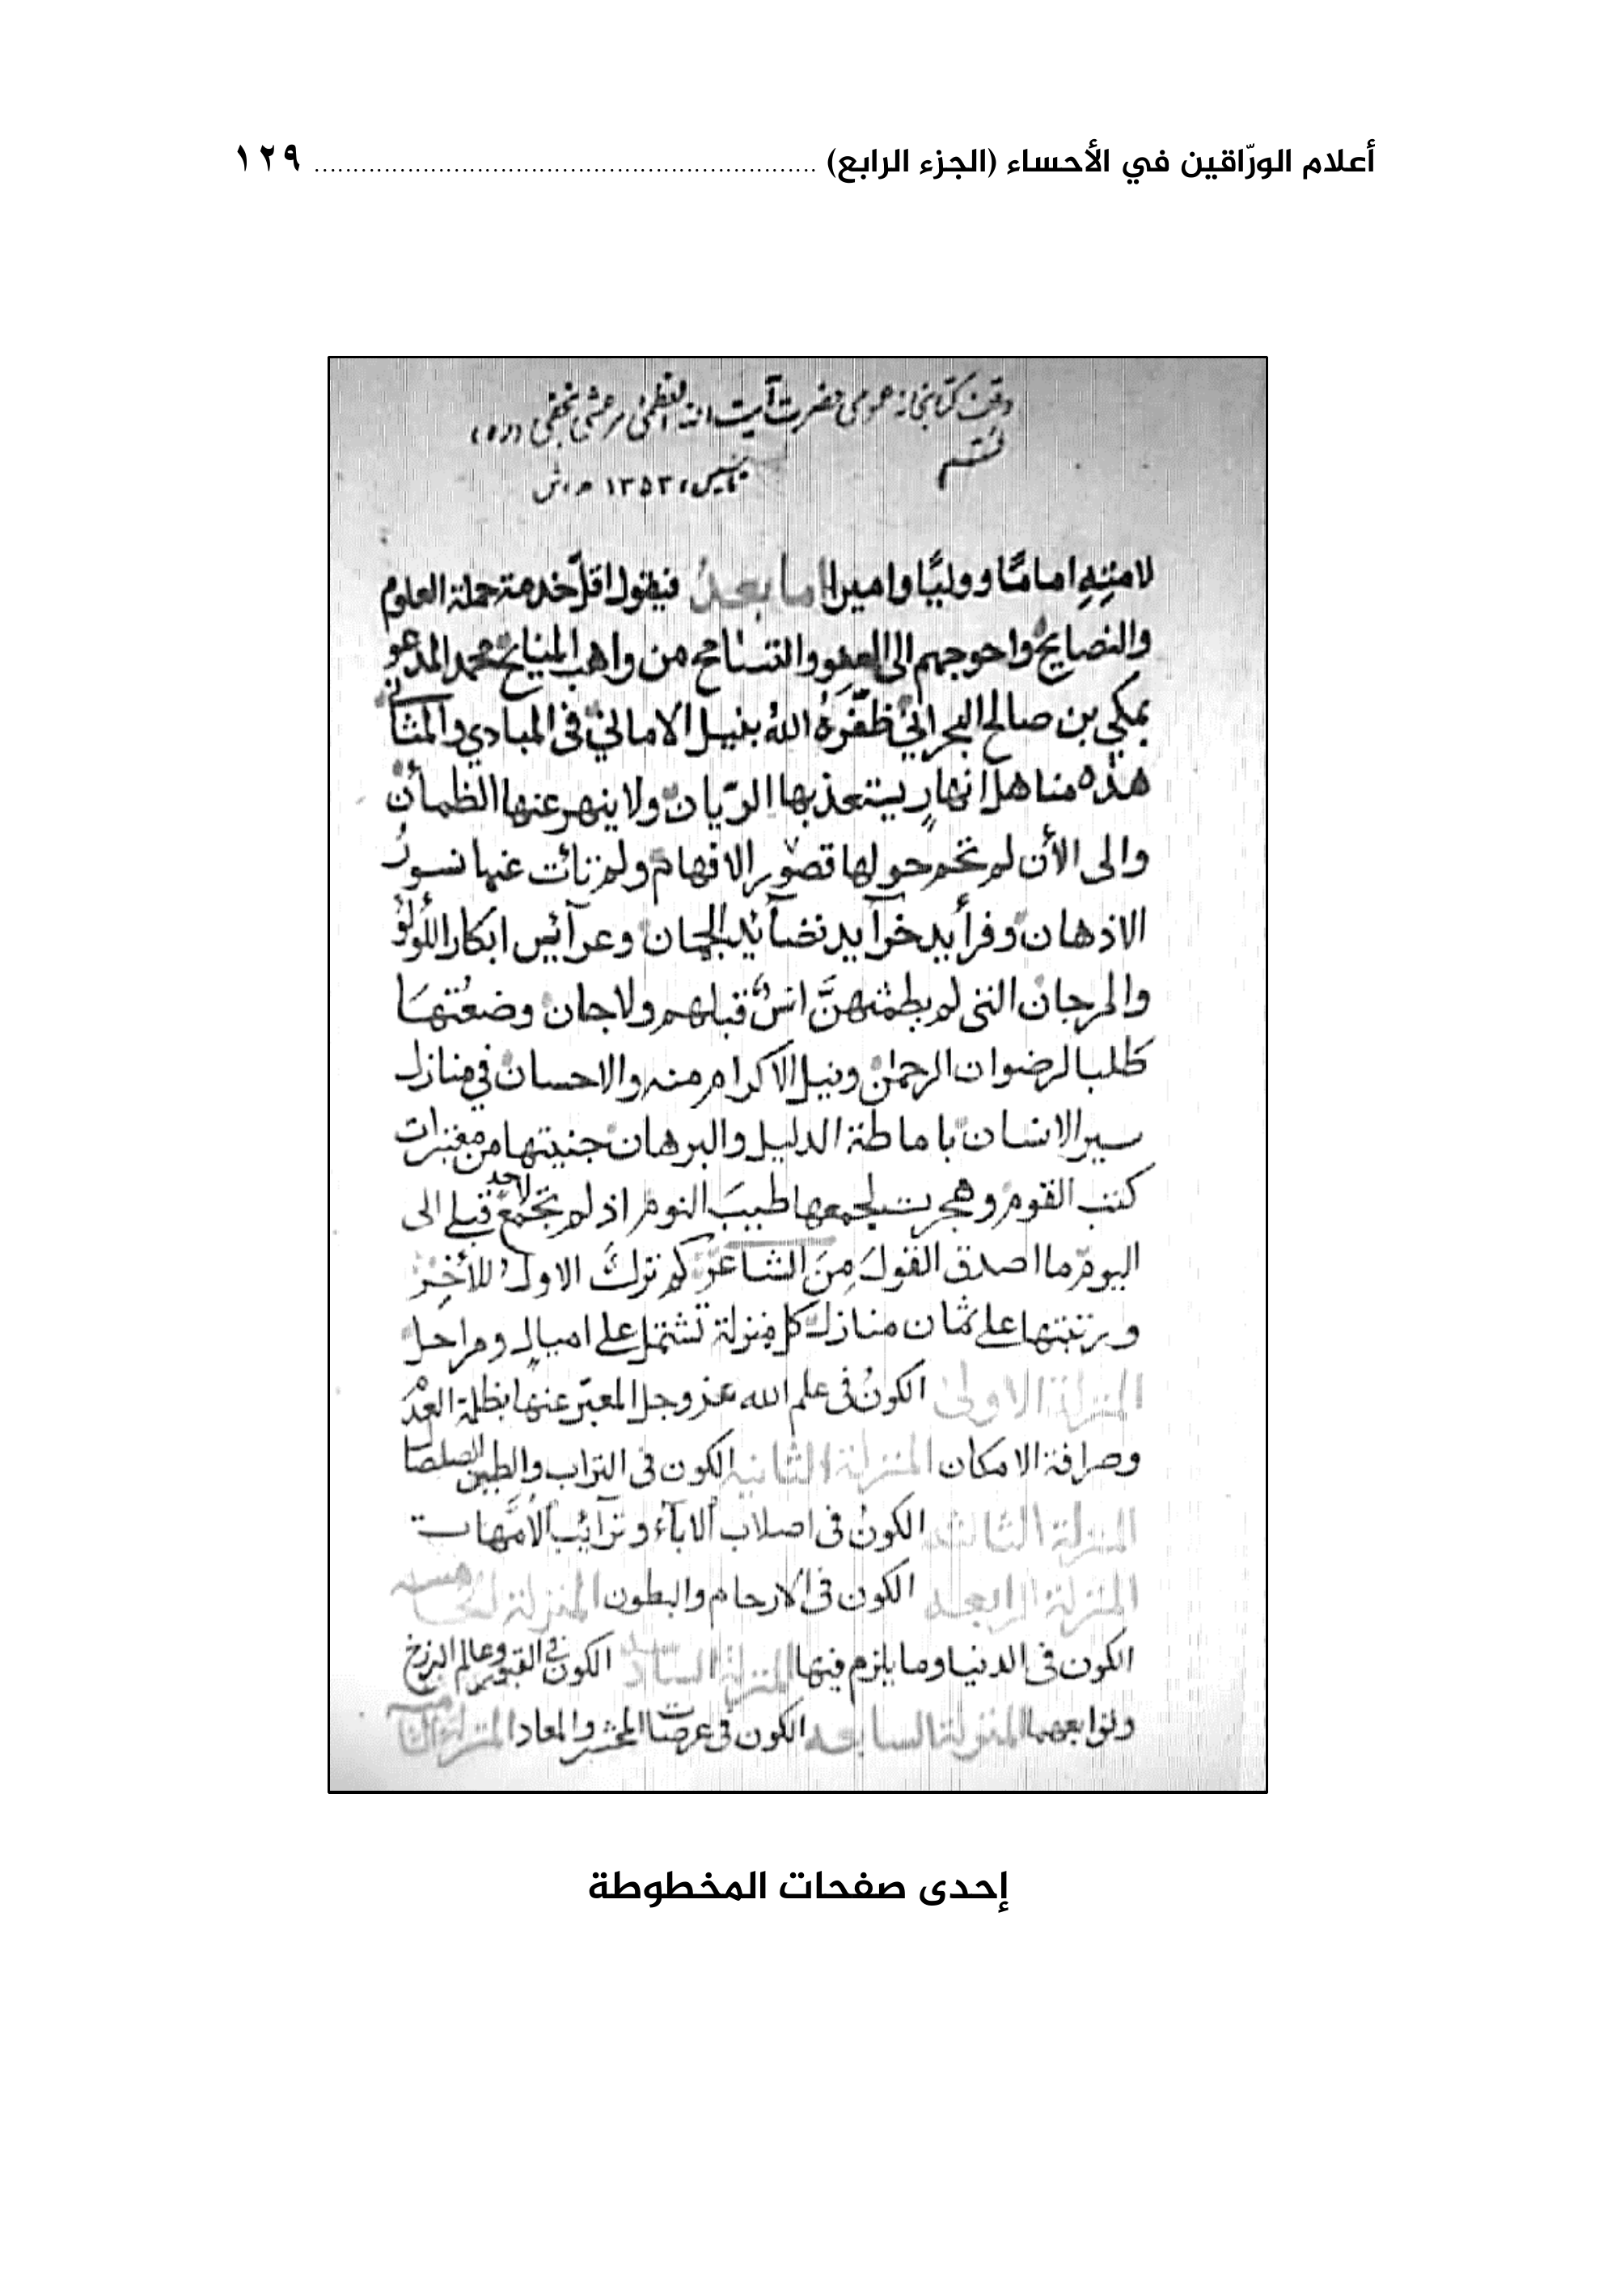 أعلام الورّاقين في الأحساء (الجزء الرابع) ........ ١٢٩
وقف كتابخانه عمومى حضرت آيت الله العظمى مرعشى نجفى (ره)
قم
تأسيس، ١٣٥٣ ه.ش
لامته اماما ووليا واميرا اما بعد فيقول اقل خدمة حملة العلوم
والنصايح واحوجهم الى العفو والتسامح من واهب المنايح محمد المدعو
بمكي بن صالح البحراني ظفره الله بنيل الاماني فى المبادي والمثاني
هذه مناهل انهارٍ يستعذبها الريان ولا ينهر عنها الظمأن
والى الأن لم تحم حولها قصور الافهام ولم نائت عنها نسور
الاذهان وفرأيد خرآيد نضآئد الجمان وعرآئس ابكار اللؤلؤ
والمرجان التى لم يطمثهنَّ انسٌ قبلهم ولا جان وضعتها
طلبا لرضوان الرحمن ونيل الاكرام منه والاحسان في منازل
سير الانسان باماطة الدليل والبرهان جنيتها من معتبرات
كتب القوم وهجرت لجمعها طيبَ النوم اذ لم تجتمع لاحد قبلي الى
اليوم ما اصدق القول مِنَ الشاعر كم ترك الاول للأخر
ورتبتها على ثمان منازل كل منزلة تشتمل على اميالٍ ومراحل
المنزلة الاولى الكون فى علم الله عز وجل المعبّر عنها بظلمة العدم
وصرافة الامكان المنزلة الثانية الكون فى التراب والطين الصلصا
المنزلة الثالثة الكون فى اصلاب الابآء وترآئب الامهات
المنزلة الرابعة الكون فى الارحام والبطون المنزلة الخامسة
الكون فى الدنيا وما يلزم فيها المنزلة السادسة الكون فى القبور وعالم البرزخ
وتوابعهما المنزلة السابعة الكون فى عرصات المحشر والمعاد المنزلة الثا
إحدى صفحات المخطوطة